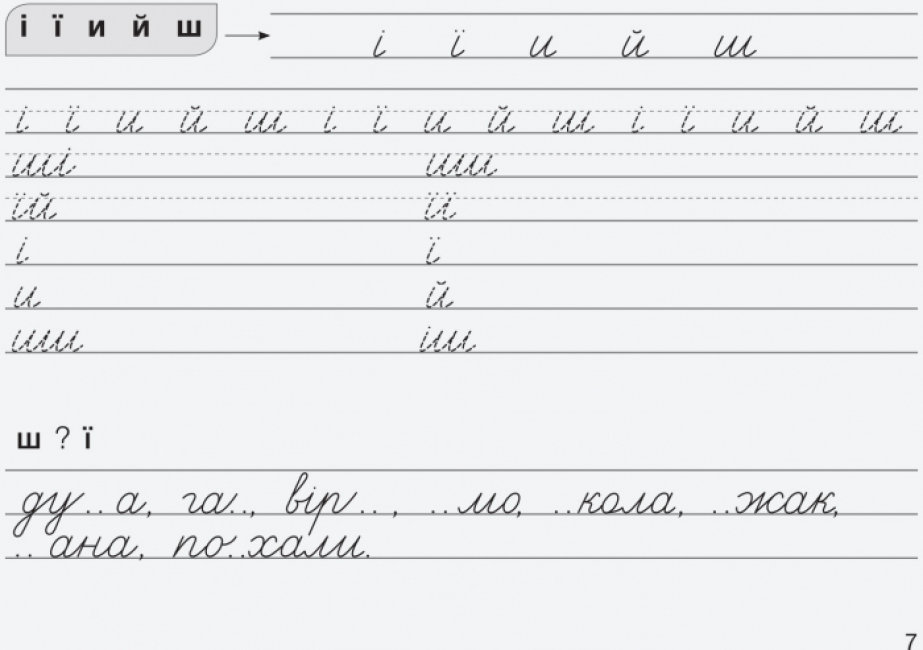 і ї и й ш
і ї и й ш
і ї и й ш і ї и й ш і ї и й ш
ші ши
їй її
і ї
и й
ши іш
ш ? ї
ду..а, га.., вір.., ..мо, ..кола, ..жак,
..ана, по..хали.
7